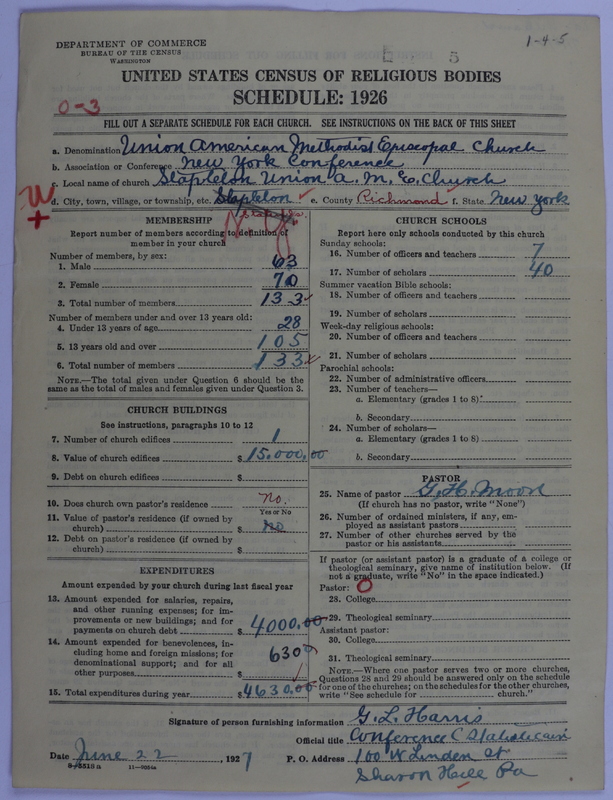 1-4-5
5
DEPARTMENT OF COMMERCE
BUREAU OF THE CENSUS
WASHINGTON
UNITED STATES CENSUS OF RELIGIOUS BODIES
SCHEDULE: 1926
0-3
FILL OUT A SEPARATE SCHEDULE FOR EACH CHURCH. SEE INSTRUCTIONS ON THE BACK OF THIS SHEET
a. Denomination Union American Methodist Episcopal Church
b. Association or Conference New York Conference
c. Local name of church Stapleton Union A. M. E. Church
W +
d. City, town, village, or township, etc. Stapleton e. County Richmond f. State New York
MEMBERSHIP
Report number of members according to definition of member in your church
Number of members, by sex:
1. Male 63
2. Female 70
3. Total number of members 133
Number of members under and over 13 years old:
4. Under 13 years of age 28
5. 13 years old and over 105
6. Total number of members 133
NOTE.—The total given under Question 6 should be the same as the total of males and females given under Question 3.
CHURCH BUILDINGS
See instructions, paragraphs 10 to 12
7. Number of church edifices 1
8. Value of church edifices $ 15.000.00
9. Debt on church edifices $
10. Does church own pastor's residence no.
Yes or No
11. Value of pastor's residence (if owned by church) $ no
12. Debt on pastor's residence (if owned by church) $
EXPENDITURES
Amount expended by your church during last fiscal year
13. Amount expended for salaries, repairs, and other running expenses; for improvements or new buildings; and for payments on church debt $ 4000.00
14. Amount expended for benevolences, including home and foreign missions; for denominational support; and for all other purposes $ 6300
15. Total expenditures during year $ 4630.00
CHURCH SCHOOLS
Report here only schools conducted by this church
Sunday schools:
16. Number of officers and teachers 7
17. Number of scholars 40
Summer vacation Bible schools:
18. Number of officers and teachers
19. Number of scholars
Week-day religious schools:
20. Number of officers and teachers
21. Number of scholars
Parochial schools:
22. Number of administrative officers
23. Number of teachers—
a. Elementary (grades 1 to 8)
b. Secondary
24. Number of scholars—
a. Elementary (grades 1 to 8)
b. Secondary
PASTOR
25. Name of pastor G. H. Moore
(If church has no pastor, write "None")
26. Number of ordained ministers, if any, employed as assistant pastors
27. Number of other churches served by the pastor or his assistants
If pastor (or assistant pastor) is a graduate of a college or theological seminary, give name of institution below. (If not a graduate, write "No" in the space indicated.)
Pastor: O
28. College
29. Theological seminary
Assistant pastor:
30. College
31. Theological seminary
NOTE.—Where one pastor serves two or more churches, Questions 28 and 29 should be answered only on the schedule for one of the churches; on the schedules for the other churches, write "See schedule for church."
Signature of person furnishing information G. L. Harris
Official title Conference Statistician
Date June 22, 1927 P. O. Address 100 W Linden St
Sharon Hill Pa
8-5518a 11-9024a